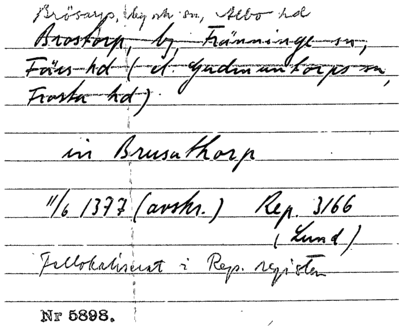 Brösarp, by och sn, Albo hd
Brostorp, by, Fränninge sn,
Färs hd (el. Gudmuntorps sn,
Frosta hd)
in Brusathorp
11/6 1377 (avskr.) Rep. 3166
(Lund)
Fellokaliserat i Rep. registen
Nr 5898.